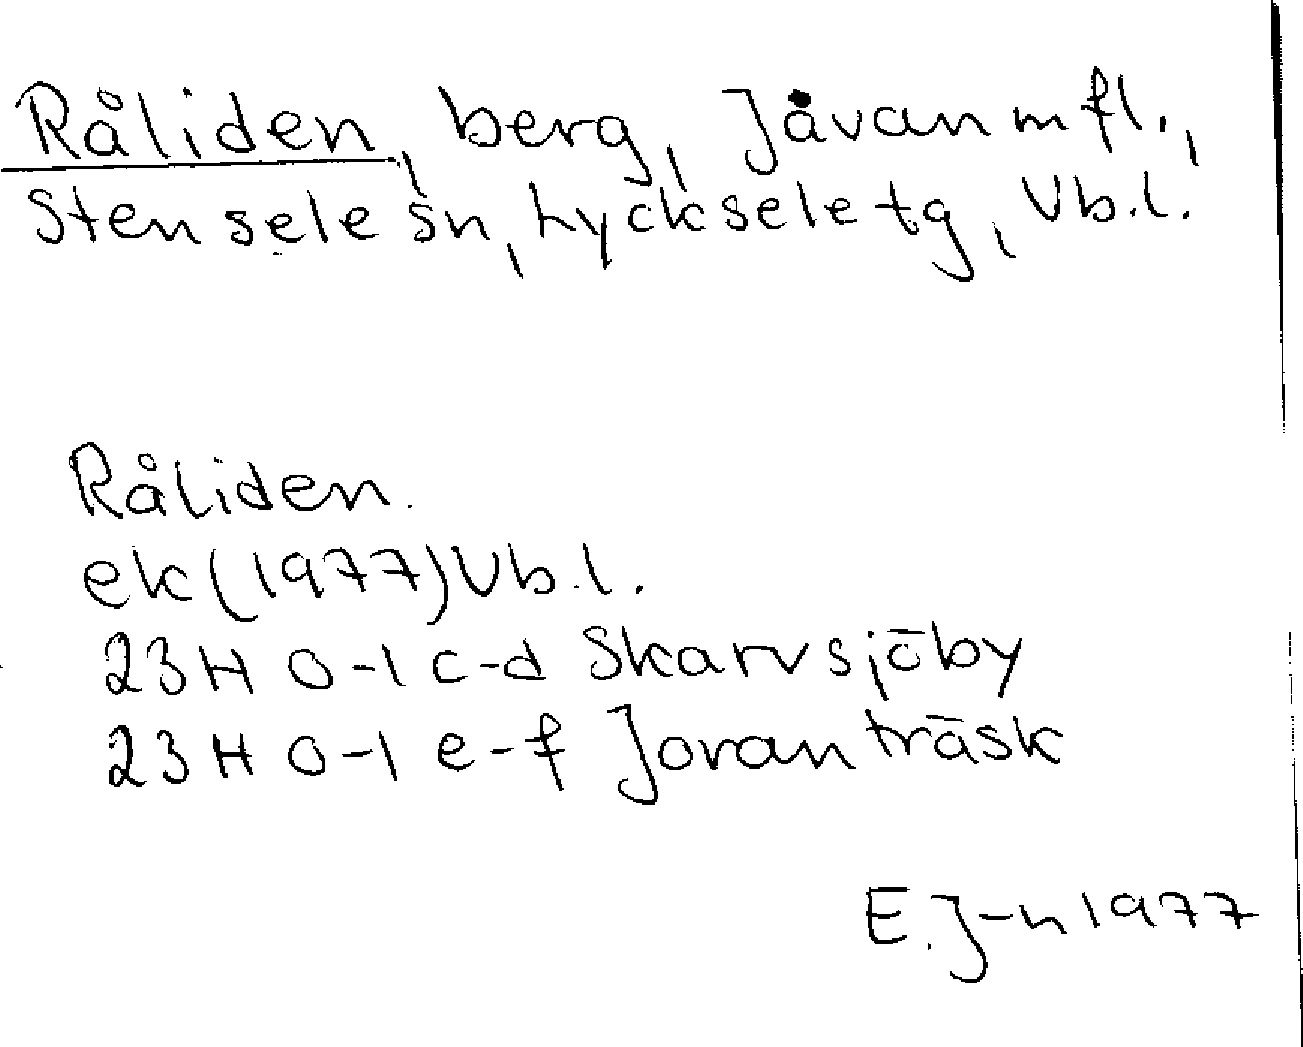 Råliden, berg, Jåvan m fl.,
Stensele sn, Lycksele tg, Vb.l.
Råliden.
ek (1977) Vb.l.
23H 0-1 c-d Skarvsjöby
23H 0-1 e-f Jovanträsk
E. J-n 1977